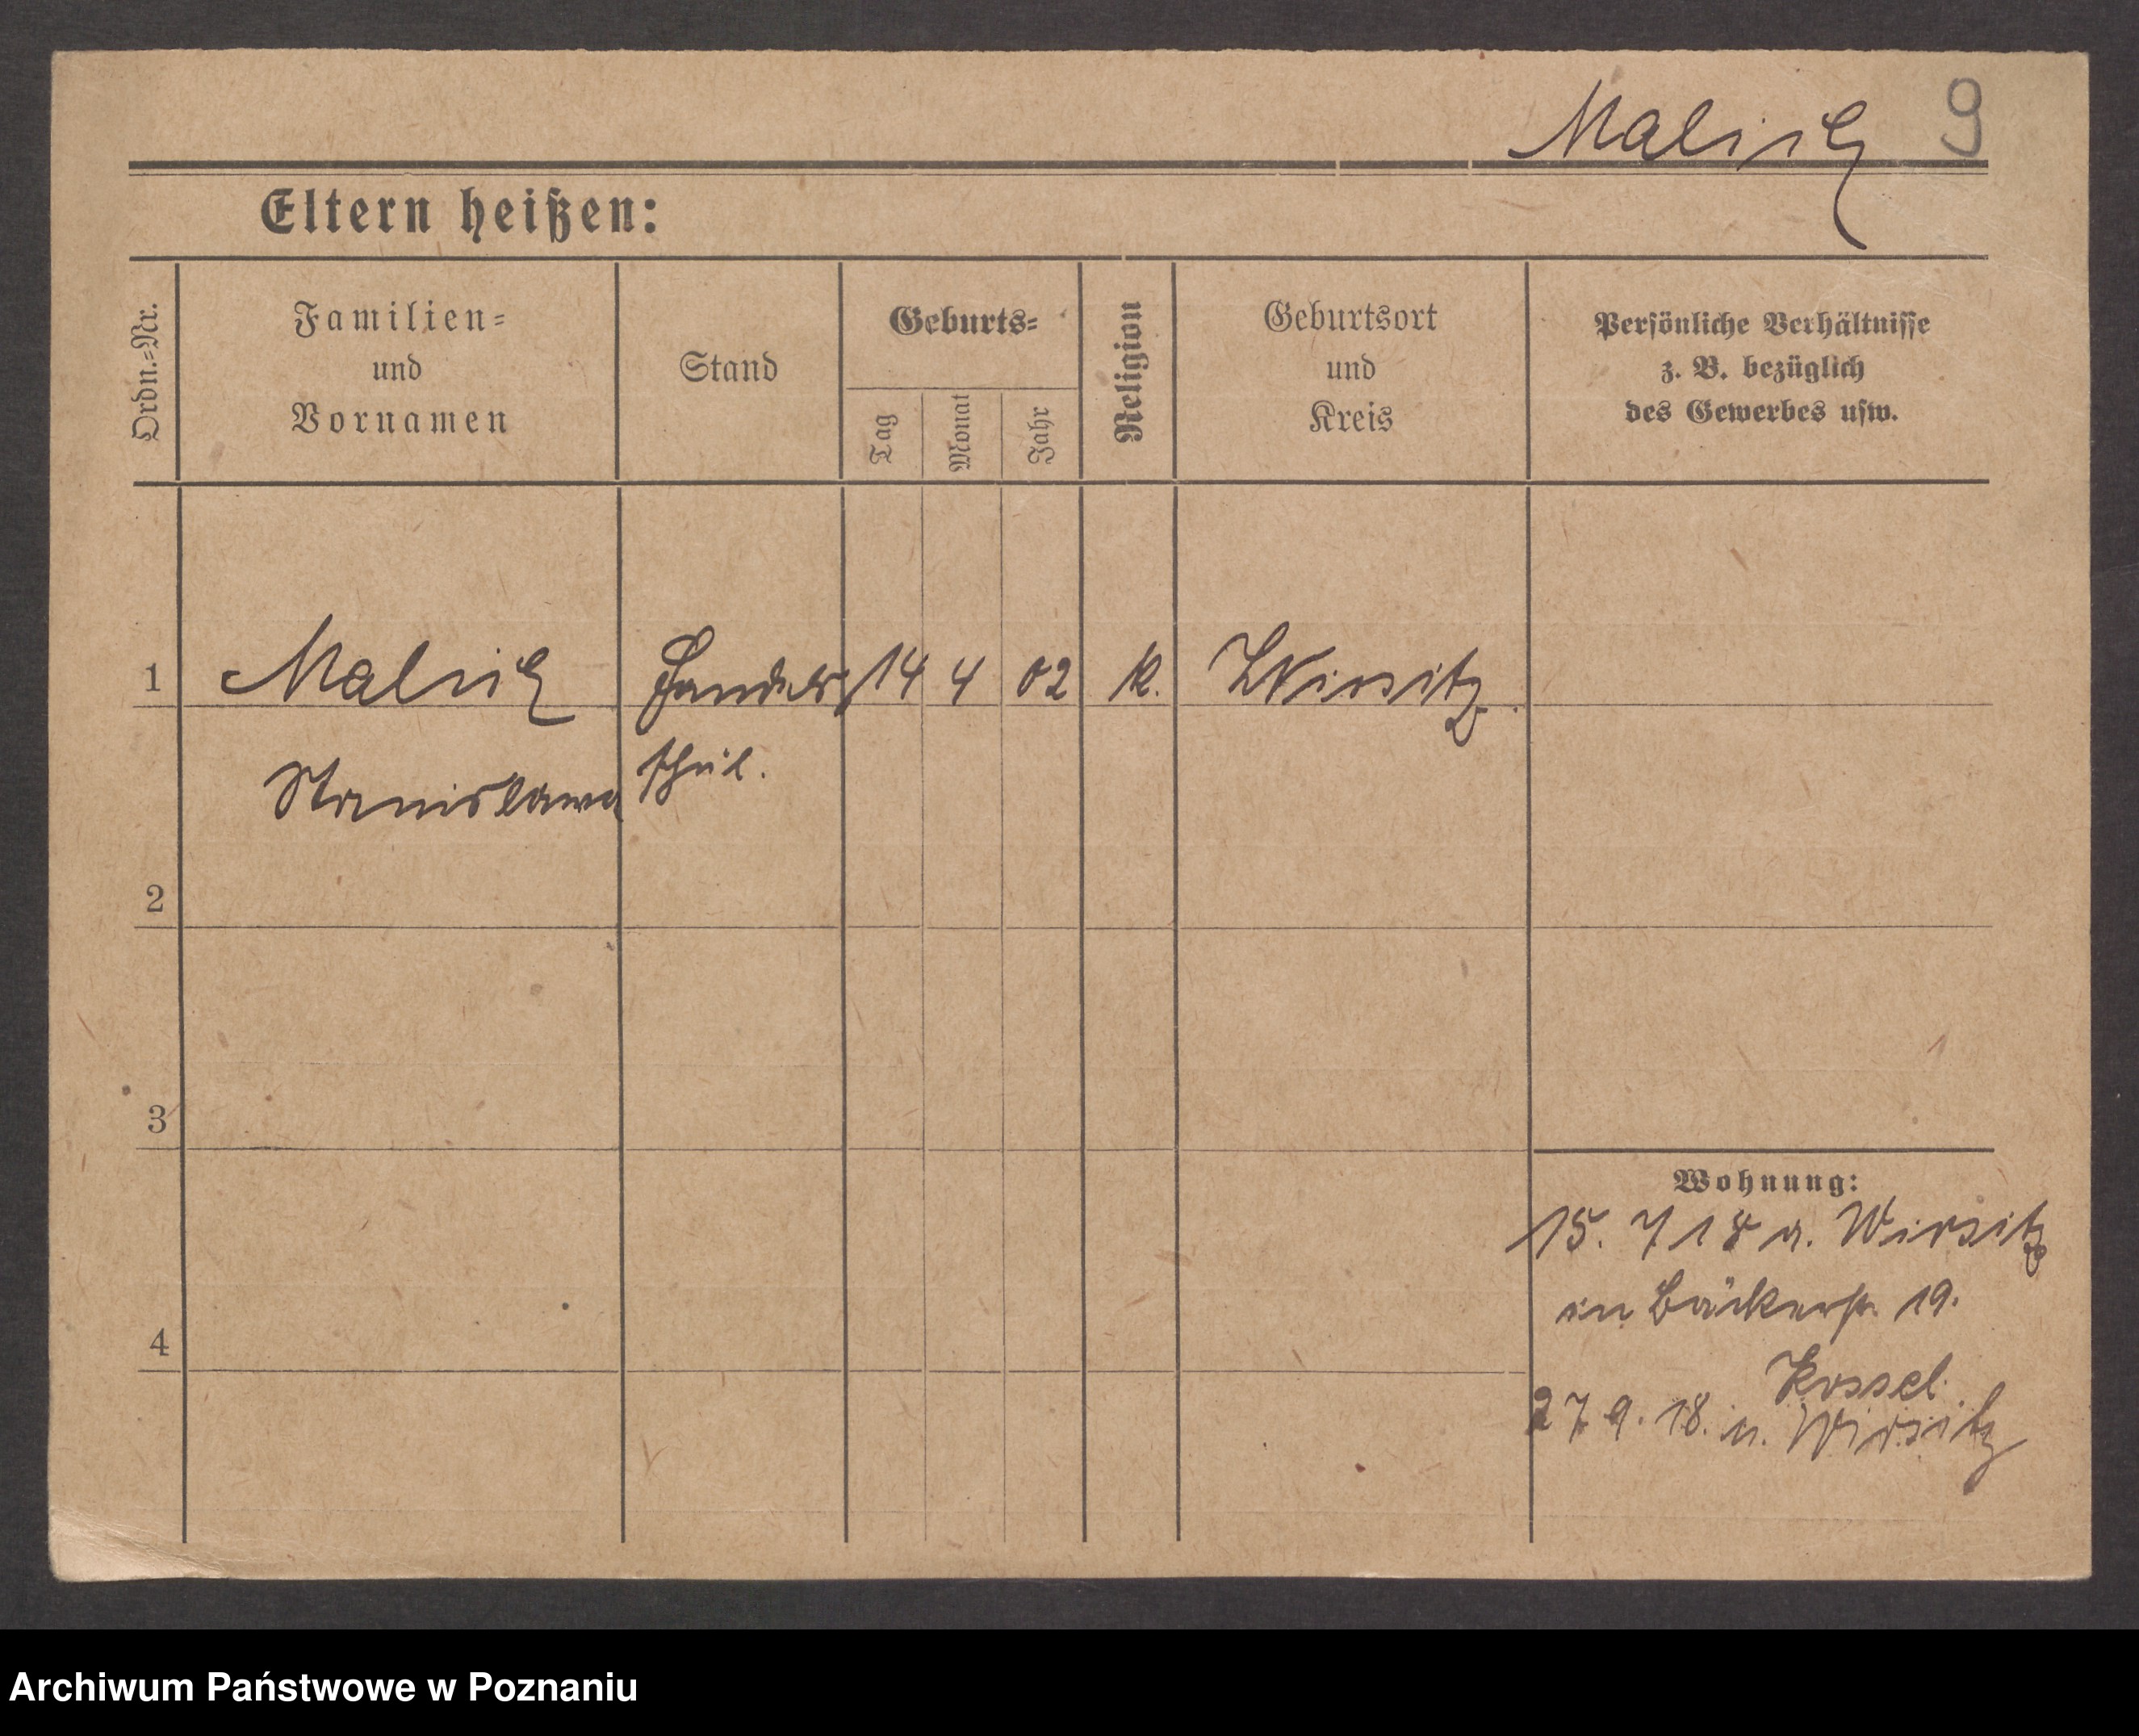 Malick 9
Eltern heißen:
Ordn.=Nr.
Familien=
und
Vornamen
Stand
Geburts=
Tag
Monat
Jahr
Religion
Geburtsort
und
Kreis
Persönliche Verhältnisse
z. B. bezüglich
des Gewerbes usw.
1 Malick Handels 14 4 02 k. Wirsitz.
Stanislawa schül.
2
3
4
Wohnung:
15. 7 18 a. Wirsitz
in Bäckerstr. 19.
Kossel.
27 9. 18. n. Wirsitz
Archiwum Państwowe w Poznaniu